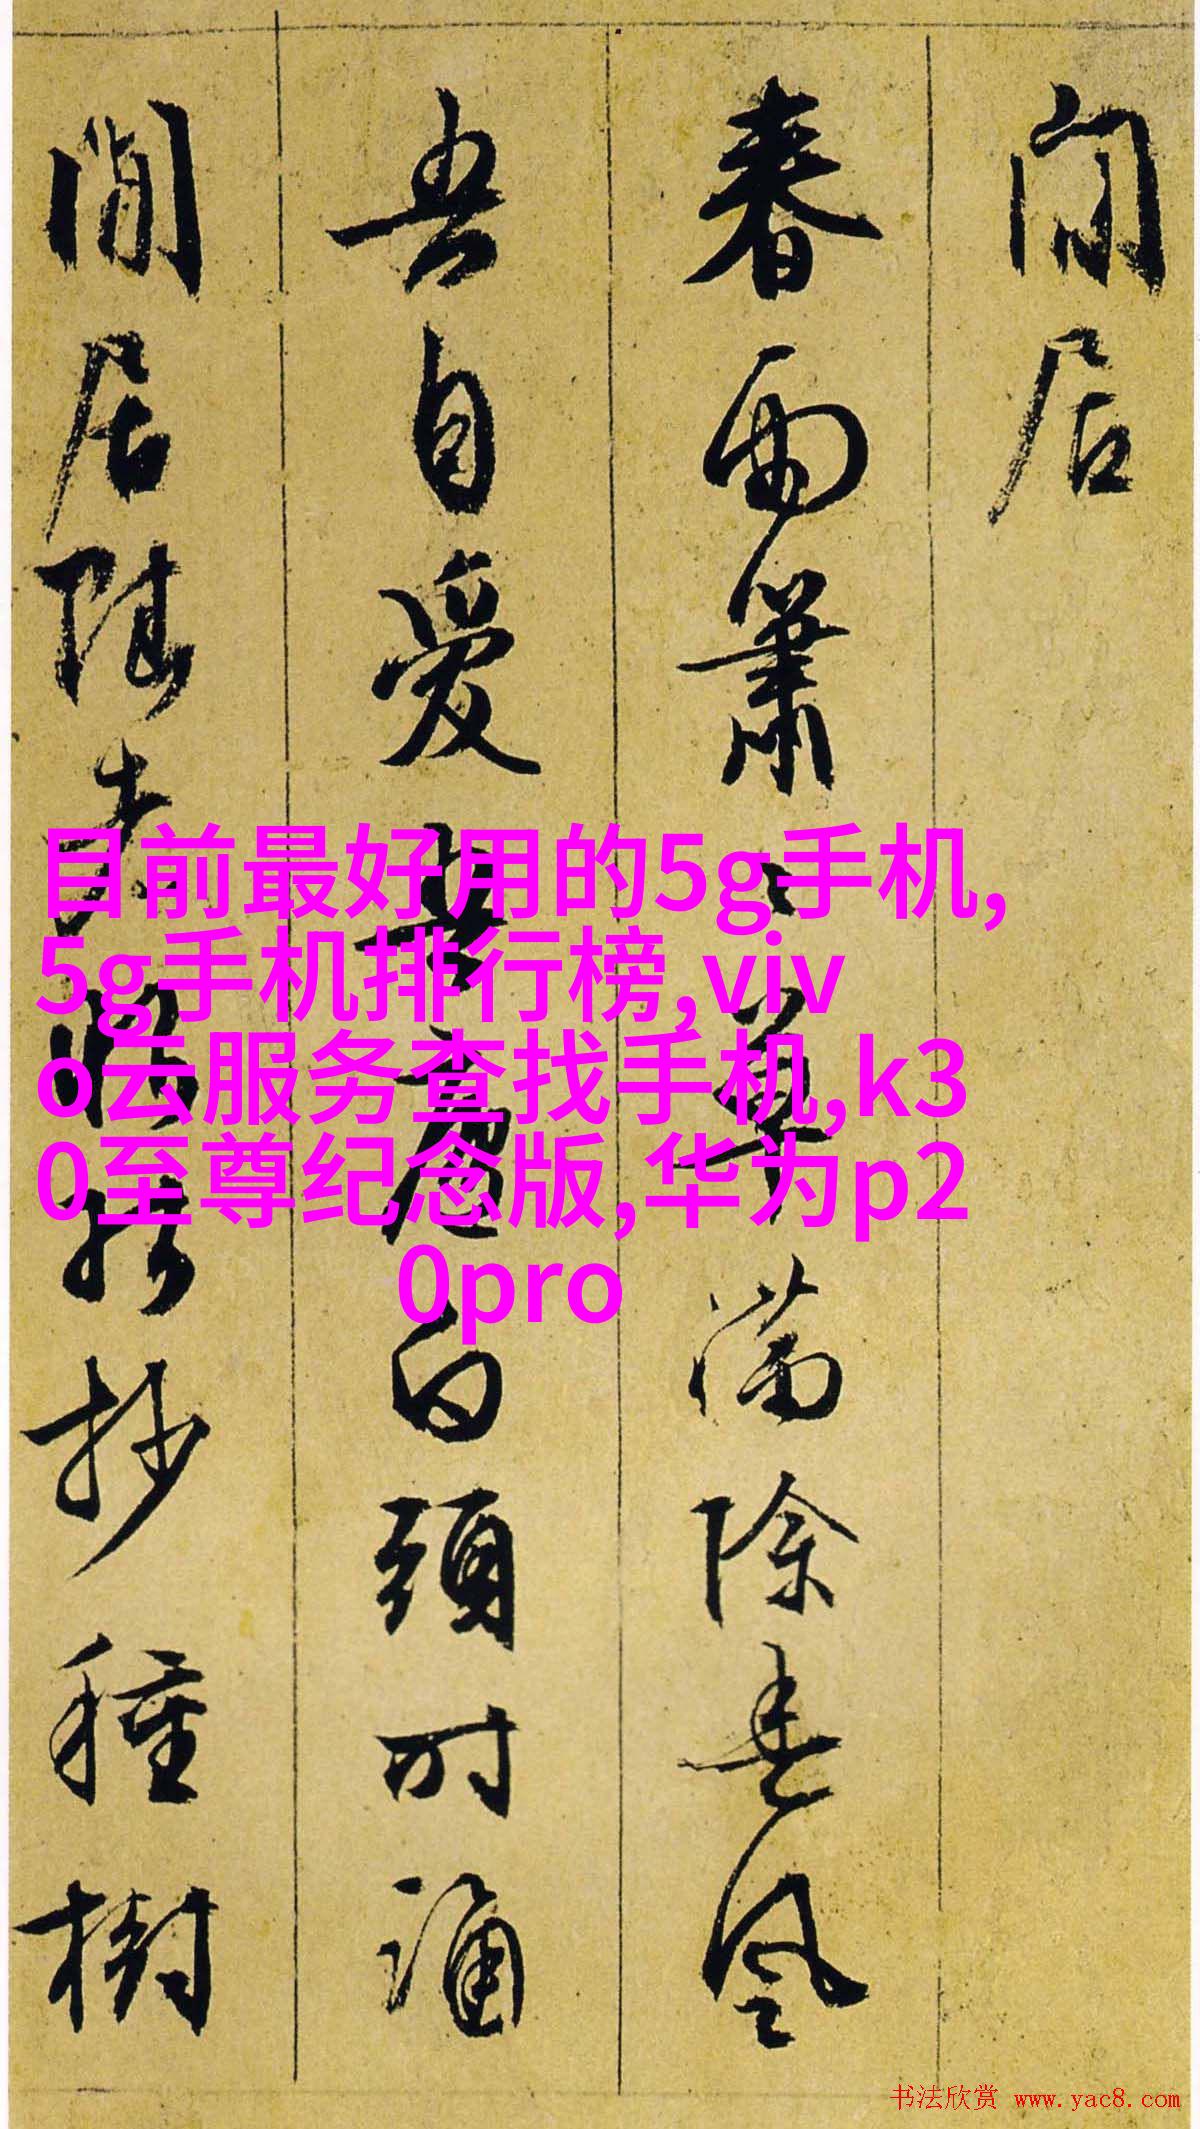 閒居
春雨蕭〻草滿除春風
吾自愛吾廬白頭時誦
閒居賦老眼猶抄種樹
目前最好用的5g手机,
5g手机排行榜,viv
o云服务查找手机,k3
0至尊纪念版,华为p2
0pro
书法欣赏 www.yac8.com